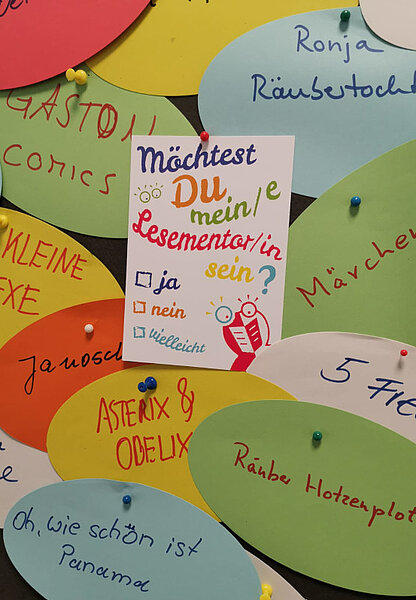 Ronja
Räubertocht
GASTON
COMICS
Möchtest
Du
mein/e
Lesementor/in
sein?
ja
nein
vielleicht
KLEINE
EXE
Märchen
Janosch
5 Fre
ASTERIX &
OBELIX
Räuber Hotzenplot
Oh, wie schön ist
Panama